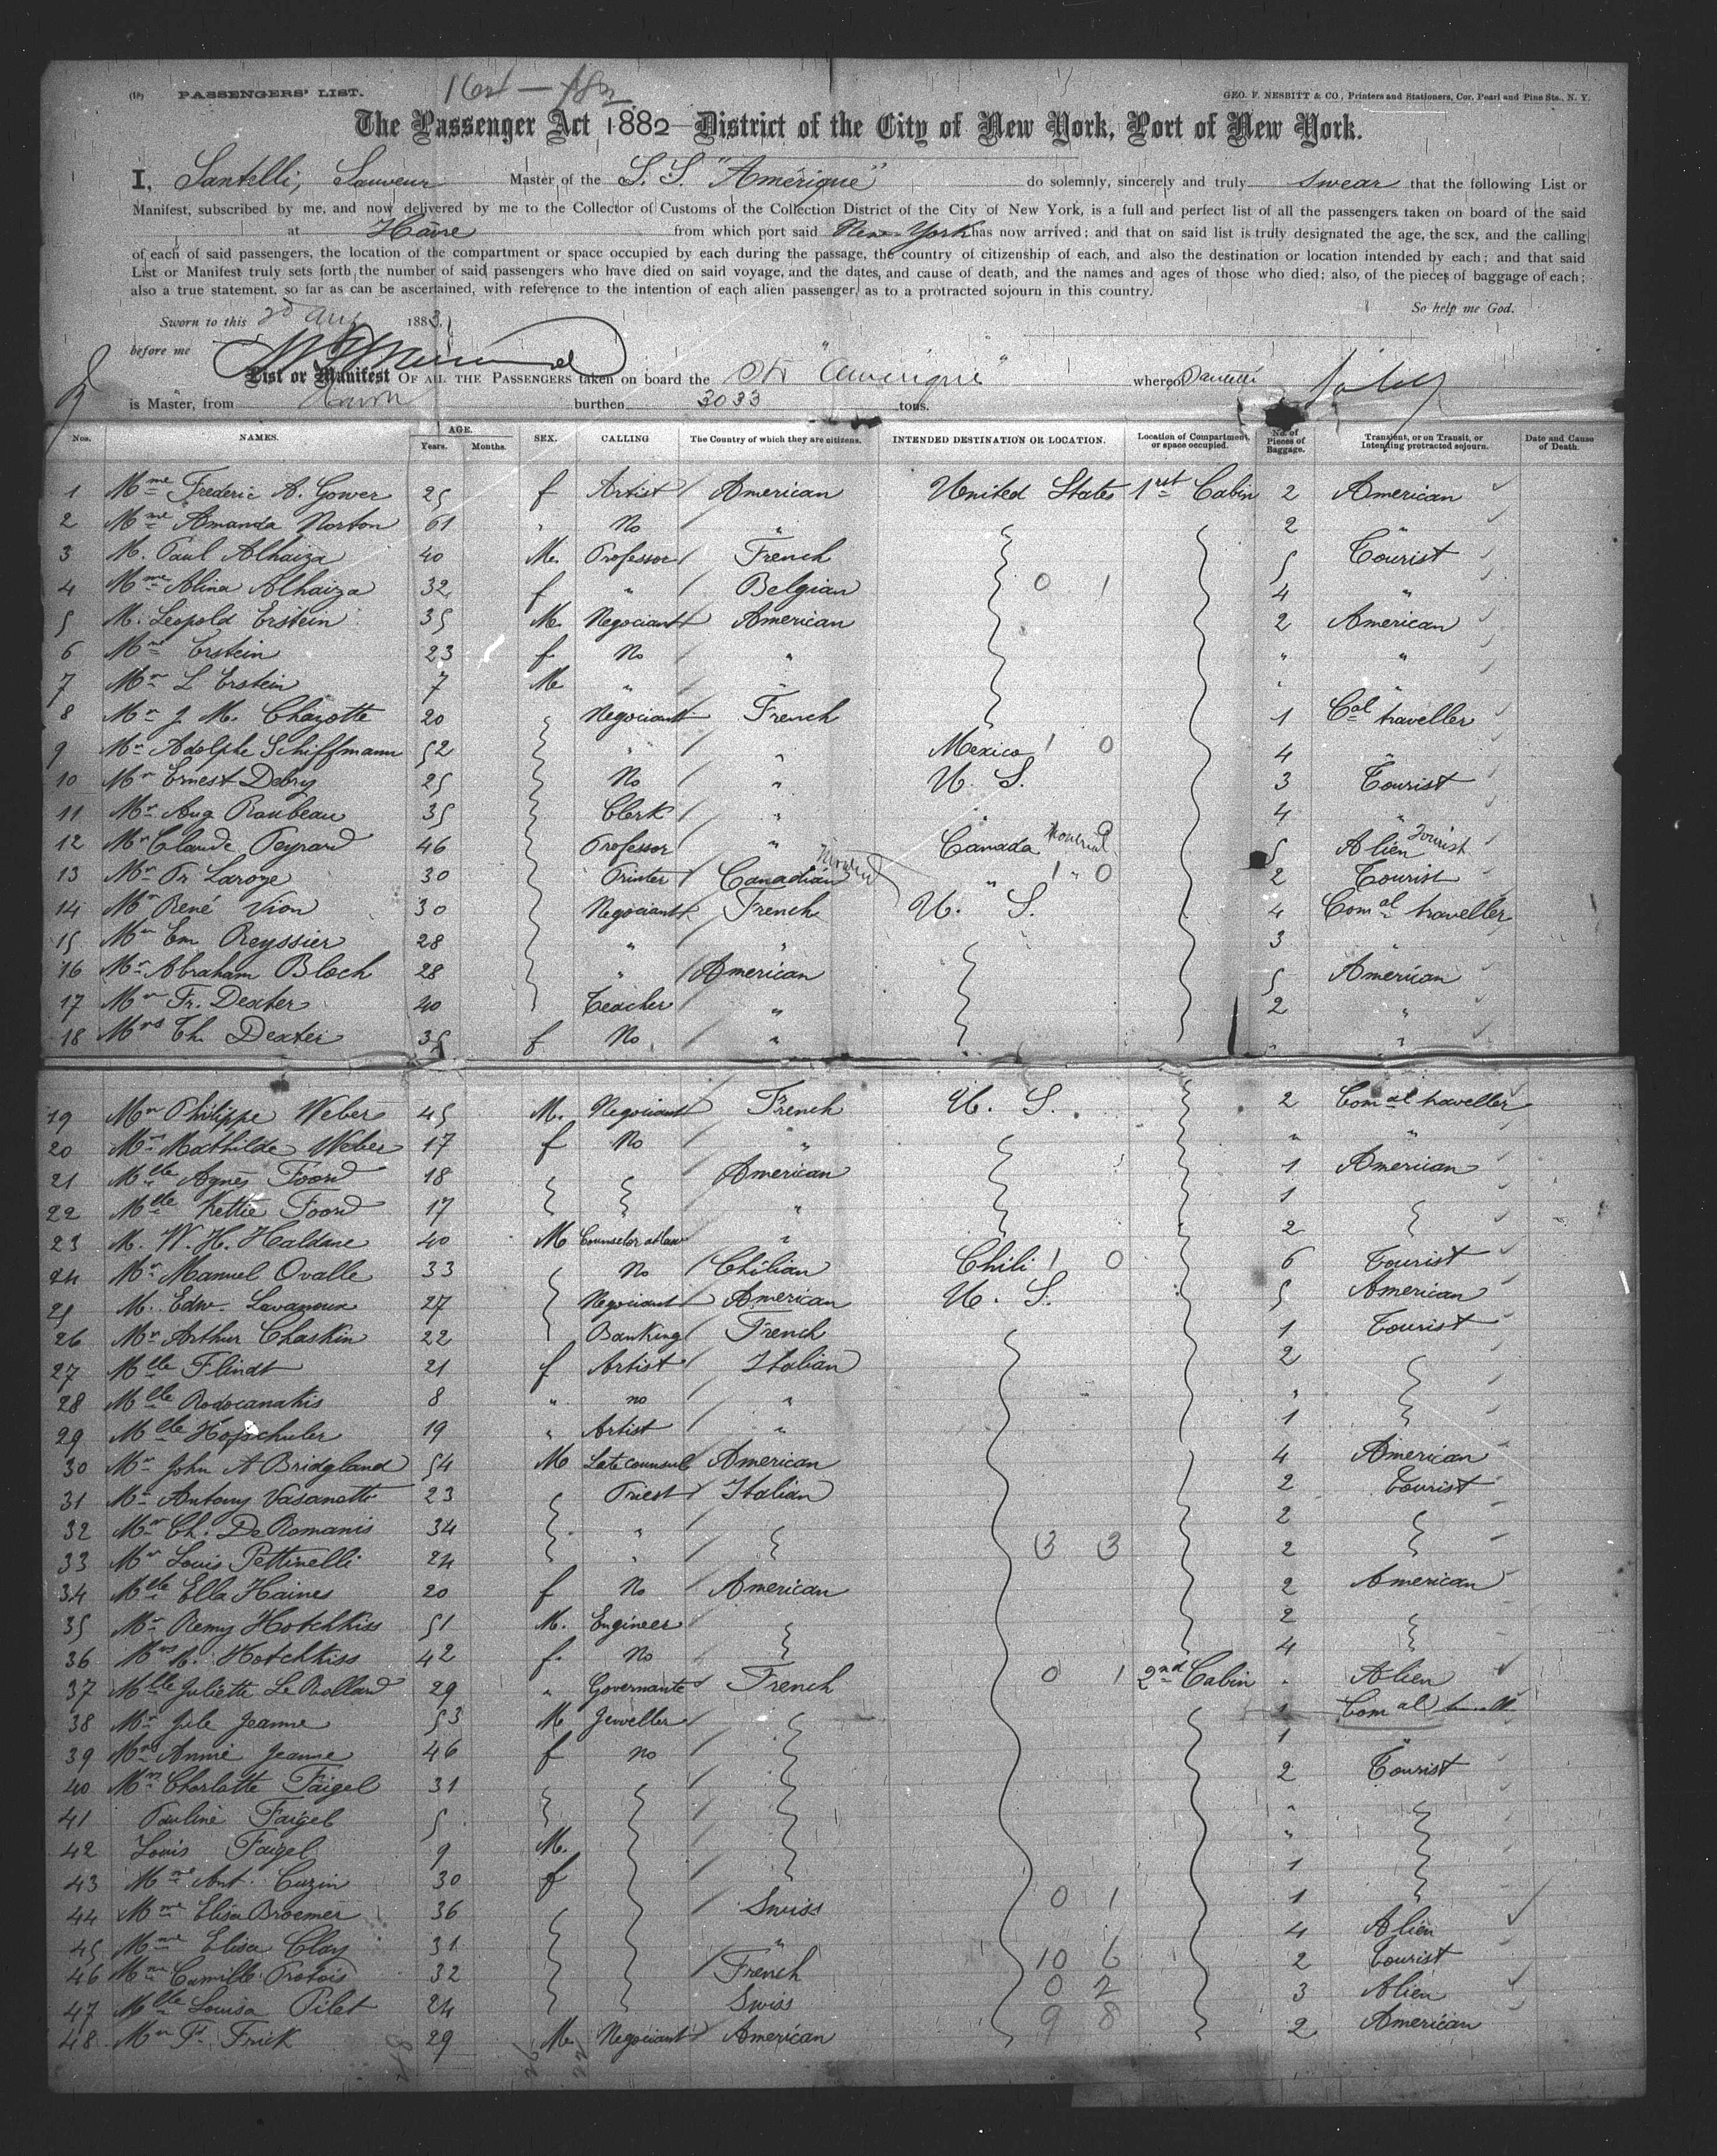 (18) PASSENGERS' LIST.
GEO. F. NESBITT & CO., Printers and Stationers, Cor. Pearl and Pine Sts., N. Y.
The Passenger Act 1882 District of the City of New York, Port of New York.
I, Santelli, Sauveur Master of the S. S. "Amérique" do solemnly, sincerely and truly swear that the following List or
Manifest, subscribed by me, and now delivered by me to the Collector of Customs of the Collection District of the City of New York, is a full and perfect list of all the passengers taken on board of the said
at Havre from which port said New York has now arrived; and that on said list is truly designated the age, the sex, and the calling
of each of said passengers, the location of the compartment or space occupied by each during the passage, the country of citizenship of each, and also the destination or location intended by each; and that said
List or Manifest truly sets forth the number of said passengers who have died on said voyage, and the dates, and cause of death, and the names and ages of those who died; also, of the pieces of baggage of each;
also a true statement, so far as can be ascertained, with reference to the intention of each alien passenger, as to a protracted sojourn in this country.
So help me God.
Sworn to this Aug 1883
before me
List or Manifest OF ALL THE PASSENGERS taken on board the Str "Amérique" whereof Santelli
is Master, from Havre burthen 3033 tons.
Nos. NAMES. AGE. Years. Months. SEX. CALLING The Country of which they are citizens. INTENDED DESTINATION OR LOCATION. Location of Compartment or space occupied. No. of Pieces of Baggage. Transient, or on Transit, or Intending protracted sojourn. Date and Cause of Death.
1 Mme Frederic A. Gower 25 f Artist American United States 1rst Cabin 2 American
2 Mme Amanda Norton 61 " No " 2 "
3 M. Paul Alhaiza 40 M. Professor French 5 Tourist
4 Mme Alina Alhaiza 32 f " Belgian 0 1 4 "
5 M. Leopold Erstein 35 M. Negociant American 2 American
6 Mme Erstein 23 f No " " "
7 Mr L Erstein 7 M " " " "
8 Mr J. M. Chazotte 20 Negociant French 1 Cal traveller
9 Mr Adolphe Schiffmann 52 " " Mexico 1 0 4 "
10 Mr Ernest Debry 25 No " U. S. 3 Tourist
11 Mr Aug Raubeau 35 Clerk " 4 "
12 Mr Claude Peyrard 46 Professor " Canada Montreal 5 Alien Tourist
13 Mr Fr. Laroze 30 Printer Canadian " 1 0 2 Tourist
14 Mr René Vion 30 Negociant French U. S. 4 Comal traveller
15 Mr Em Preyssier 28 " " 3 "
16 Mr Abraham Bloch 28 " American 5 American
17 Mr Fr. Dexter 40 Teacher " 2 "
18 Mrs Th. Dexter 35 f No " " "
19 Mr Philippe Weber 45 M. Negociant French U. S. 2 Comal traveller
20 Mme Mathilde Weber 17 f No " " "
21 Mlle Agnes Foord 18 American 1 American
22 Mlle Kettie Foord 17 " 1
23 M. W. H. Haldane 40 M Counselor at law " 2
24 Mr Manuel Ovalle 33 No Chilian Chili 1 0 6 Tourist
25 M. Edw. Lavanoux 27 Negociant American U. S. 5 American
26 Mr Arthur Chaskin 22 Banking French 1 Tourist
27 Mlle Flindt 21 f Artist Italian 2
28 Mlle Rodocanakis 8 " no " "
29 Mlle Hopschuler 19 " Artist " 1
30 Mr John A Bridgland 54 M Late counsul American 4 American
31 Mr Antony Vasanotti 23 Priest Italian 2 Tourist
32 Mr Ch. De Romanis 34 " 2
33 Mr Louis Pettinelli 24 " 3 3 2
34 Mlle Ella Haines 20 f No American 2 American
35 Mr Remy Hotchkiss 51 M. Engineer 2
36 Mrs R. Hotchkiss 42 f. No 4
37 Mlle Juliette Le Rolland 29 " Governante French 0 1 2nd Cabin " Alien
38 Mr Jule Jeanne 53 M Jeweller 1 Comal
39 Mrs Annie Jeanne 46 f no 1 "
40 Mme Charlotte Faigel 31 2 Tourist
41 Pauline Faigel 5 "
42 Louis Faigel 9 M. "
43 Mme Ant. Cuzin 30 f 1
44 Mme Elisa Broemer 36 Swiss 0 1 1
45 Mme Elisa Clay 31 " 4 Alien
46 Mme Camille Protois 32 French 10 6 2 Tourist
47 Mlle Louisa Pilet 24 Swiss 0 2 3 Alien
48 Mr Fd Frick 29 M. Negociant American 9 8 2 American